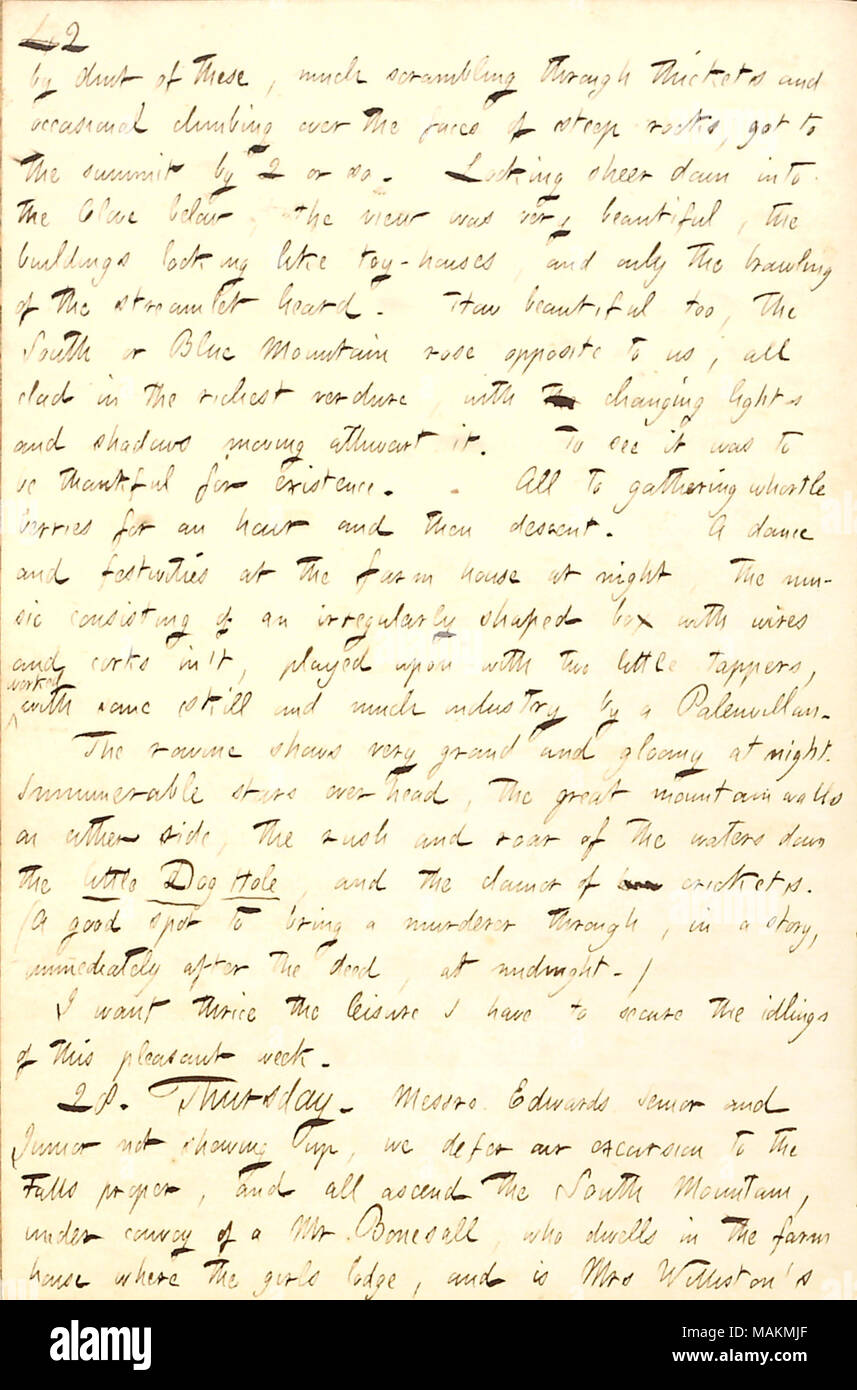 2
by dint of these, much scrambling through thickets and
occasional climbing over the faces of steep rocks, got to
the summit by 2 or so. Looking sheer down into
the Clove below, the view was very beautiful, the
buildings looking like toy-houses, and only the brawling
of the streamlet heard. How beautiful too, the
South or Blue Mountain rose opposite to us, all
clad in the richest verdure, with changing lights
and shadows moving athwart it. To see it was to
be thankful for existence. All to gathering whortle
berries for an hour and then descent. A dance
and festivities at the farm house at night, the mu-
sic consisting of an irregularly shaped box with wires
and corks in't, played upon with two little tappers,
worked
with some skill and much industry by a Palenvillan.
The ravine shows very grand and gloomy at night.
Innumerable stars over head, the great mountain walls
on either side, the rush and roar of the waters down
the little Dog Hole, and the clamor of crickets.
(A good spot to bring a murderer through, in a story,
immediately after the deed, at midnight.)
I want thrice the leisure I have to secure the idlings
of this pleasant week.
28. Thursday. Messrs. Edwards Senior and
Junior not showing up, we defer our excursion to the
Falls proper, and all ascend the South Mountain,
under convoy of a Mr. Bonesall, who dwells in the farm
house where the girls lodge, and is Mrs Williston's
alamy
Image ID: MAKMJF
www.alamy.com